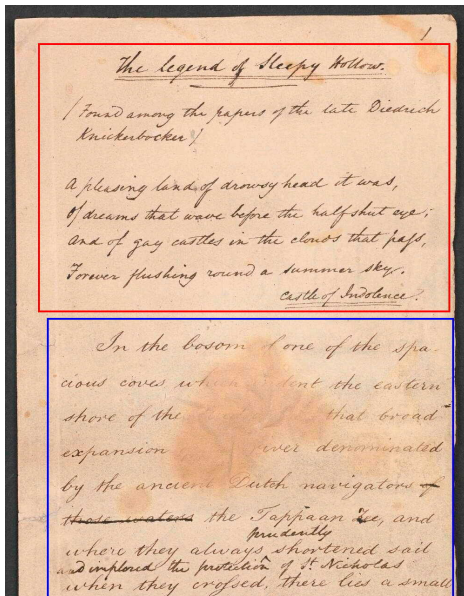 1
The legend of Sleepy Hollow.
(Found among the papers of the late Diedrich
Knickerbocker)
A pleasing land of drowsy head it was,
Of dreams that wave before the half shut eye;
And of gay castles in the clouds that pass,
Forever flushing round a summer sky.
Castle of Indolence.
In the bosom of one of the spa-
cious coves which indent the eastern
shore of the that broad
expansion river denominated
by the ancient Dutch navigators of
those waters the Tappaan Zee, and
prudently
where they always shortened sail
and implored the protection of St Nicholas
when they crossed, there lies a small